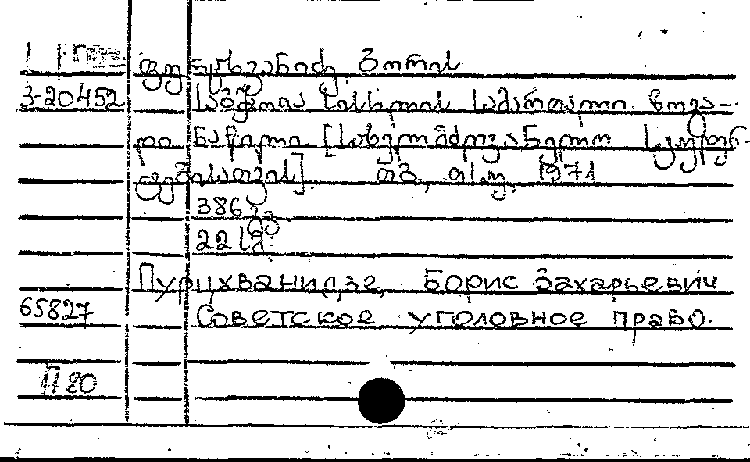 ფურცხვანიძე, ბორის
3-20452 საბჭოთა სისხლის სამართალი. ზოგა-
დი ნაწილი [სახელმძღვანელო სტუდენ-
ტებისათვის]. თბ., თსუ, 1971
386 გვ.
22 სმ
Пурцхванидзе, Борис Захарьевич
65827 Советское уголовное право.
П 80